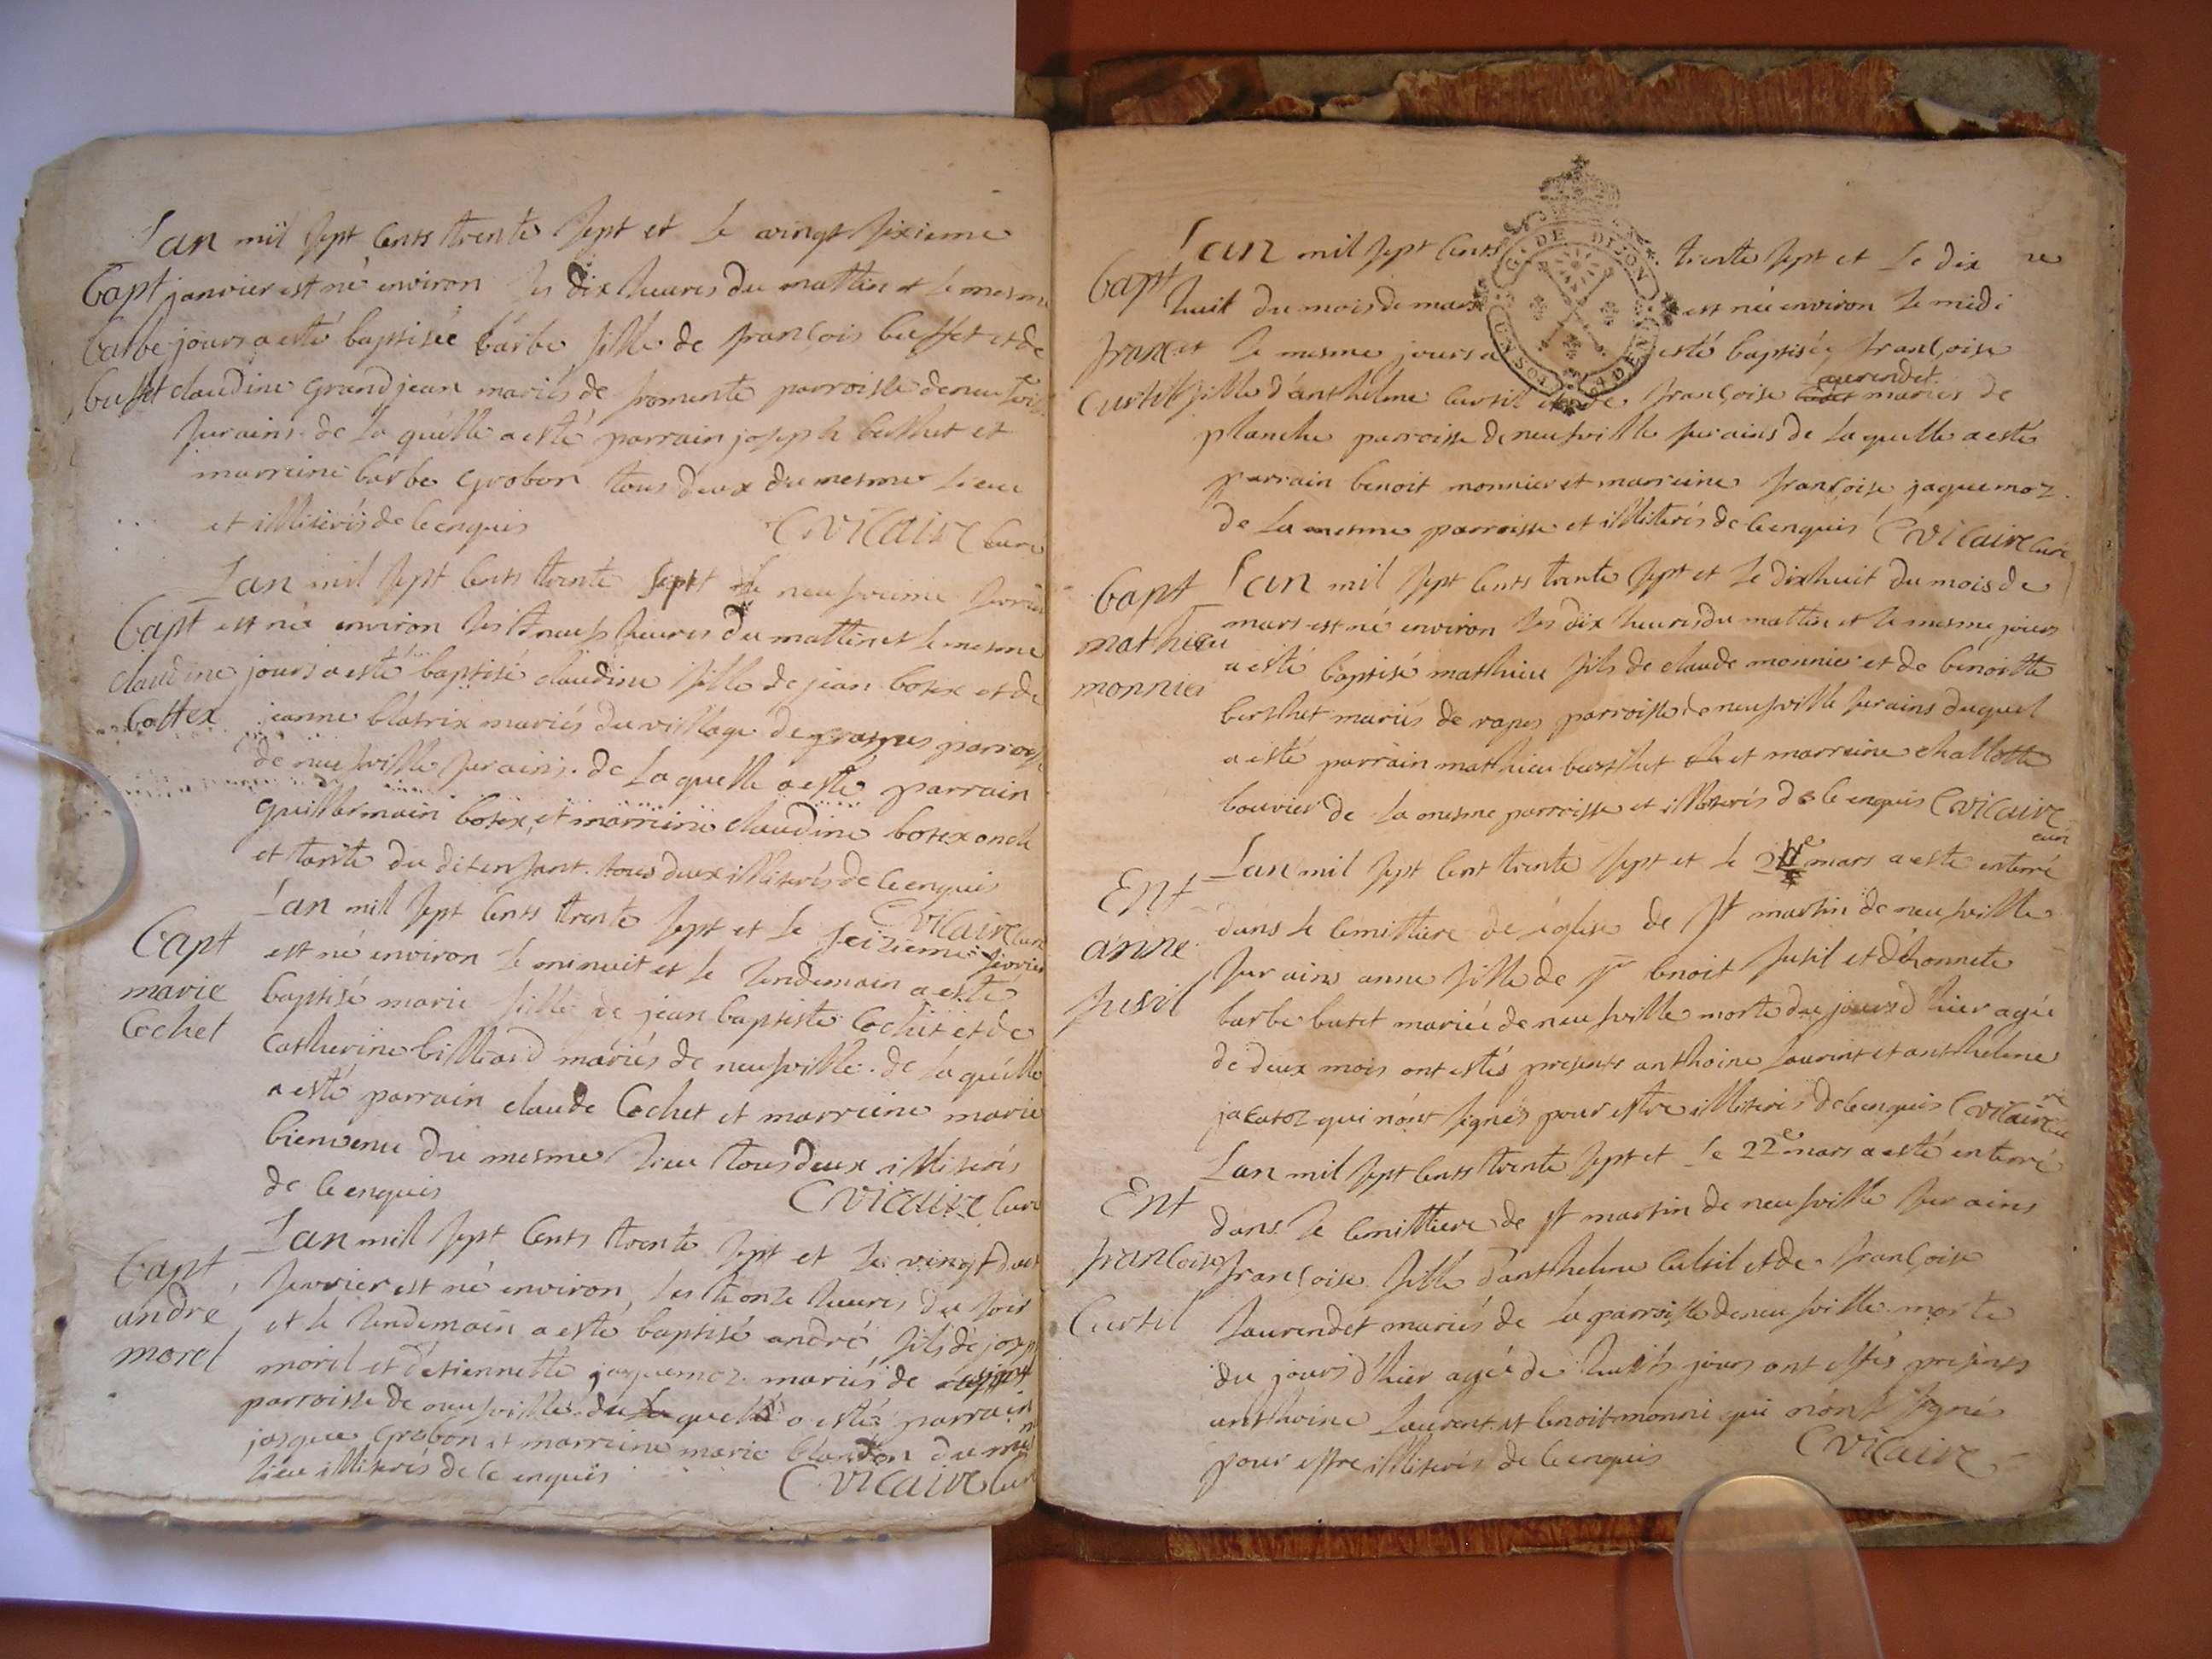 Lan mil sept cents trente sept et le vingt sixieme
Bapt janvier est né environ les dix heures du mattin et le mesme
barbe jours a esté baptisée barbe fille de francois buffet et de
buffet claudine grandjean mariés de fromente parroisse de neufville
sur ains. de la quelle a esté parrain joseph berthet et
marreine barbe grobon tous deux du mesme lieu
et illiterés de ce enquis CVicaire Curé
Lan mil sept cents trente sept le neufvieme fevrier
Bapt est née environ les neufs heures du mattin et le mesme
claudine jours a esté baptisé claudine fille de jean botex et de
Bottex jeanne blatrix mariés du village de parroisse
de neufville sur ains. de la quelle a esté parrain
guillermain botex, et marreine claudine botex oncle
et tante du dit enfant tous deux illiterés de ce enquis
CVicaire Curé
Lan mil sept cents trente sept et le seizieme fevrier
Bapt est né environ le minuit et le lendemain a esté
marie baptisé marie fille de jean baptiste Cochet et de
Cochet catherine billiard mariés de neufville. de la quelle
a esté parrain claude Cochet et marreine marie
bienvenu du mesme lieu tous deux illiterés
de ce enquis CVicaire Curé
Lan mil sept cents trente sept et le vingt deux
Bapt fevrier est né environ les onze heures du soir
andré et le lendemain a esté baptisé andré fils de joseph
morel morel et d'etiennette jaquemoz mariés de
parroisse de neufville. du quel a esté parrain
jasque grobon et marreine marie blandon du mesme
lieu illiterés de ce enquis CVicaire Curé
G. DE DIJON
Lan mil sept cents trente sept et le dix
Bapt huit du mois de mars est née environ le midi
franc. et le mesme jours a esté baptisée françoise
aurendet
Curtil fille d'anthelme Curtil et de françoise mariés de
planche parroisse de neufville sur ains de la quelle a esté
parrain benoit monnier et marreine françoise jaquemoz
de la mesme parroisse et illiterés de ce enquis CVicaire Curé
Bapt Lan mil sept cents trente sept et le dixhuit du mois de
mathieu mars est né environ les dix heures du mattin et le mesme jours
monnier a esté baptisé matthieu fils de claude monnier et de benoitte
berthet mariés de rapes parroisse de neufville sur ains duquel
a esté parrain matthieu berthet et marreine challotte
bouvier de la mesme parroisse et illiterés de ce enquis CVicaire
curé
Lan mil sept cent trente sept et le mars a esté enterré
Ent dans le cemittiere de eglise de st martin de neufville
anne sur ains anne fille de sr benoit fusil et d'honnete
fusil barbe butet mariée de neufville morte du jours d'hier agée
de deux mois ont estés presents anthoine laurent et anthelme
qui n'ont signés pour estre illiterés de ce enquis CVicaire
Lan mil sept cents trente sept et le 22e mars a esté enterré
Ent dans le cemittiere de st martin de neufville sur ains
francoise françoise fille d'anthelme Curtil et de françoise
Curtil laurendet mariés de la parroisse de neufville. morte
du jours d'hier agée de huit jours ont estés presents
anthoine laurent et benoit monni qui n'ont signé
pour estre illiterés de ce enquis CVicaire